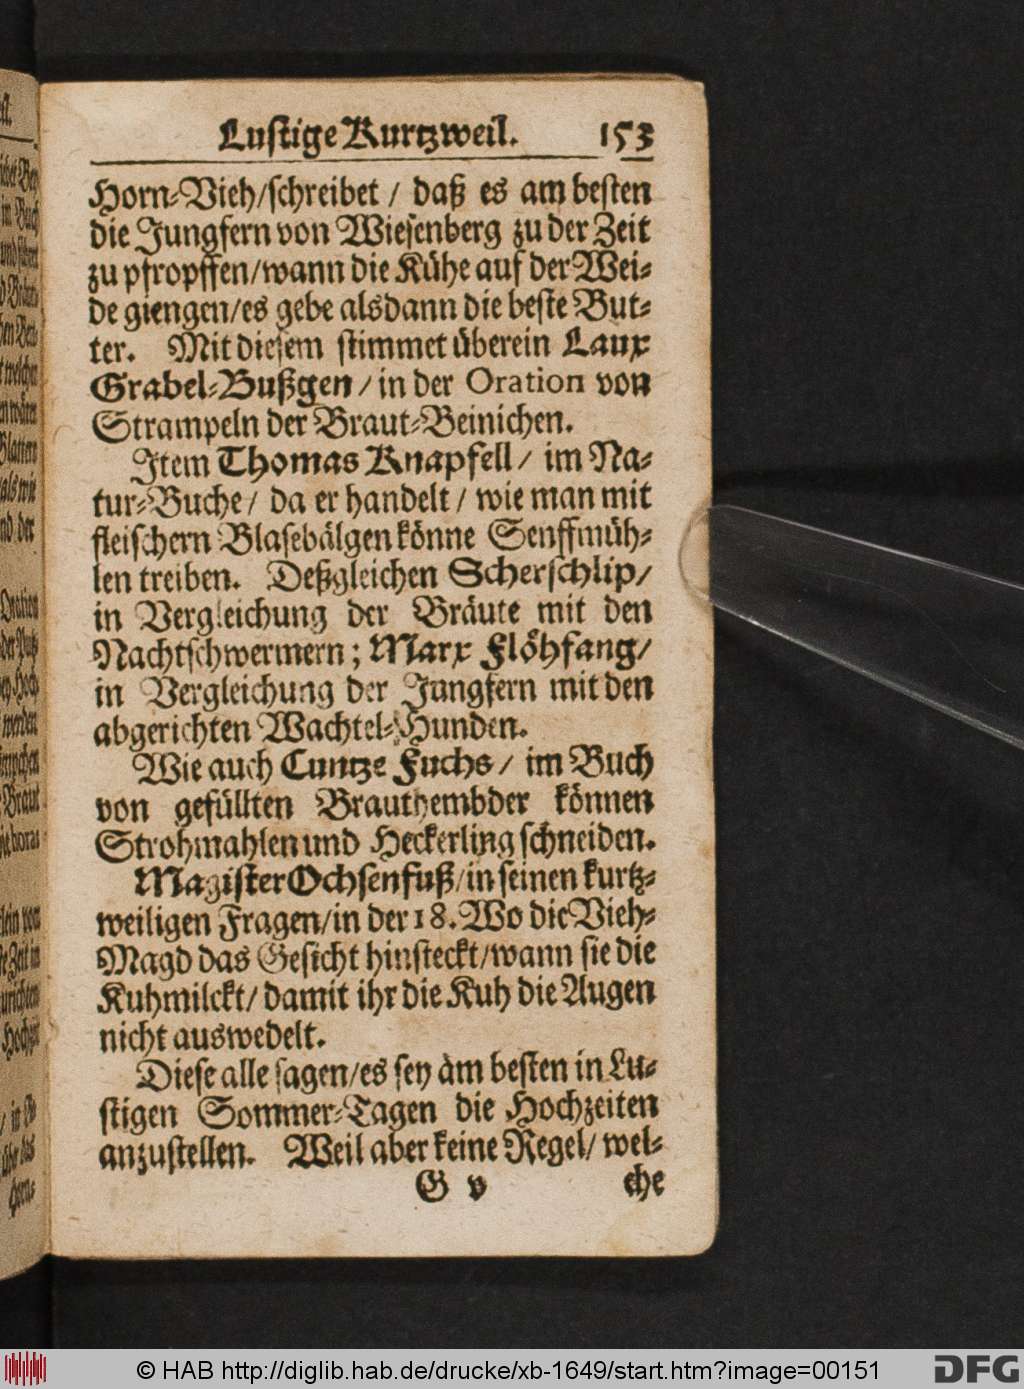 Lustige Kurtzweil. 153
Horn-Vieh/schreibet / daß es am besten
die Jungfern von Wiesenberg zu der Zeit
zu pfropffen/wann die Kühe auf der Wei-
de giengen/es gebe alsdann die beste But-
ter. Mit diesem stimmet überein Laux
Grabel-Bußgen / in der Oration von
Strampeln der Braut-Beinichen.
Item Thomas Knapfell / im Na-
tur-Buche / da er handelt / wie man mit
fleischern Blasebälgen könne Senffmüh-
len treiben. Deßgleichen Scherschlip/
in Vergleichung der Bräute mit den
Nachtschwermern; Marx Flöhfang/
in Vergleichung der Jungfern mit den
abgerichten Wachtel-Hunden.
Wie auch Cuntze Fuchs / im Buch
von gefüllten Brauthembder können
Strohmahlen und Heckerling schneiden.
Magister Ochsenfuß/in seinen kurtz-
weiligen Fragen/in der 18. Wo die Vieh-
Magd das Gesicht hinsteckt/wann sie die
Kuhmilckt/ damit ihr die Kuh die Augen
nicht auswedelt.
Diese alle sagen/es sey am besten in Lu-
stigen Sommer-Tagen die Hochzeiten
anzustellen. Weil aber keine Regel/ wel-
G v che
© HAB http://diglib.hab.de/drucke/xb-1649/start.htm?image=00151 DFG